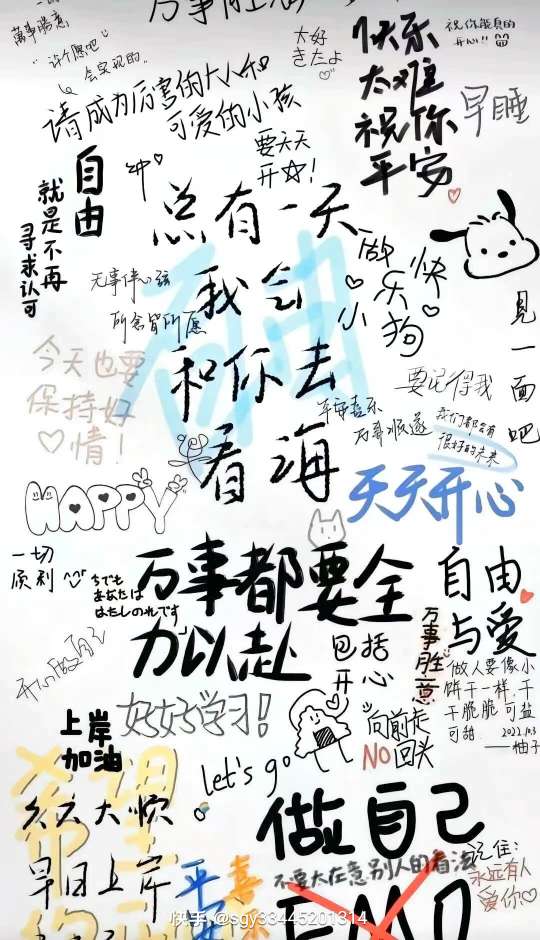 万事胜意
萬事勝意
许个愿吧
会实现的..
请成为厉害的大人和
可爱的小孩
太好
きたよ
快乐
太难
祝你
平安
祝你能真的
开心!!
早睡
要天天
开☆!
自由
就是不再
寻求认可
总有一天
我会
和你去
看海
自由
做
快
乐
小
狗
见
一
面
吧
无事绊心弦
所念皆所愿
今天也要
保持好
♡情!
要记得我
平安喜乐
万事顺遂
我们都会有
很好的未来
天天开心
HAPPY
一切
顺利
万事都要全
力以赴
包括
开心
ちでも
あなたは
はたしのれです
自由
与爱
万事胜意
开心做自己
做人要像小
饼干一样,干
干脆脆可盐
可甜.
2022.10.3
——柚子
好好学习!
上岸
加油
向前走
NO回头
let's go
希望
久久大顺
早日上岸
平
喜
做自己
不要太在意别人的看法
EMO
记住:
永远有人
爱你♡
快手 @sgy33445201314